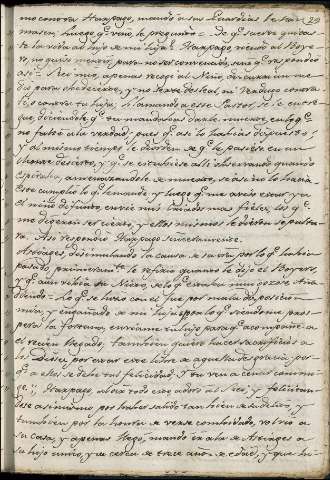 mo conocia Harpago, mandó a sus Guardias le tra- 29
masen, luego q.e vino, le preguntó = de q.e suerte quitas-
te la vida al hijo de mi hija? Harpago viendo al Boye-
ro, no quiso mentir, para no ser convencido, sino q.e respondió
asi = Rey mio, apenas recogi al Niño,
dio para obedecerte, y no serte desleal, ni Verdugo contra
ti, o contra tu hija. Llamando a este Pastor, le
diciendole q.e tu mandabas darle muerte, en lo q.e
no falté a la verdad, pues q.e asi lo habias dispuesto;
y al mismo tiempo le q.e le pusiese en un
Monte desierto, y q.e se estubiese alli observando quando
espiraba, amenazandole de muerte, si asi no lo hacia.
Este cumplió lo q.e le mandé, y luego q.e me avisó estar ya
el niño difunto, envié mis criados mas fieles, los q.e
me dixeron ser cierto, y ellos mismos le dieron sepultu-
ra. Asi respondió Harpago sinceramente.
Astiages, disimulando la causa de su ira por lo q.e habia
pasado, primeramente le refirió quanto le dijo el Boyero,
y q.e aun vivia su Nieto, de lo q.e estaba muy gozoso Aña-
diendo = Lo q.e se hizo con el fue por mala disposicion
mia, y engañado de mi hija; por lo q.e siendome pros-
pera la fortuna, enviame tu hijo para q.e acompañe a
el recien llegado, tambien quiero hacer sacrificios a
los Dioses por estar este libre de aquella desgracia, por-
q.e a ellos se debe tal felicidad. Y tu ven a cenar conmi-
go.; Harpago, al oir todo esto adoró al Rei, y felicitan-
dose asimismo por haber salido tambien de su delito, y
tambien por la honra de verse combidado, volvió a
su casa, y apenas llegó, mandó ir a la de Astiages a
su hijo unico, y de cerca de trece años de edad, y que hi-